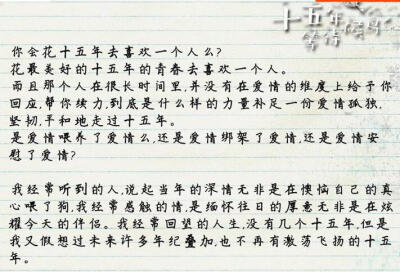 十五年
你会花十五年去喜欢一个人么?
花最美好的十五年的青春去喜欢一个人。
而且那个人在很长时间里,并没有在爱情的维度上给予你
回应,帮你续力,到底是什么样的力量补足一份爱情孤独,
坚韧,平和地走过十五年。
是爱情喂养了爱情么,还是爱情绑架了爱情,还是爱情安
慰了爱情?
我经常听到的人,说起当年的深情无非是在懊恼自己的真
心喂了狗,我经常感触的情,是缅怀往日的厚意无非是在炫
耀今天的伴侣。我经常回望的人生,没有几个十五年,但是
我又假想过未来许多年纪叠加,也不再有激荡飞扬的十五
年。